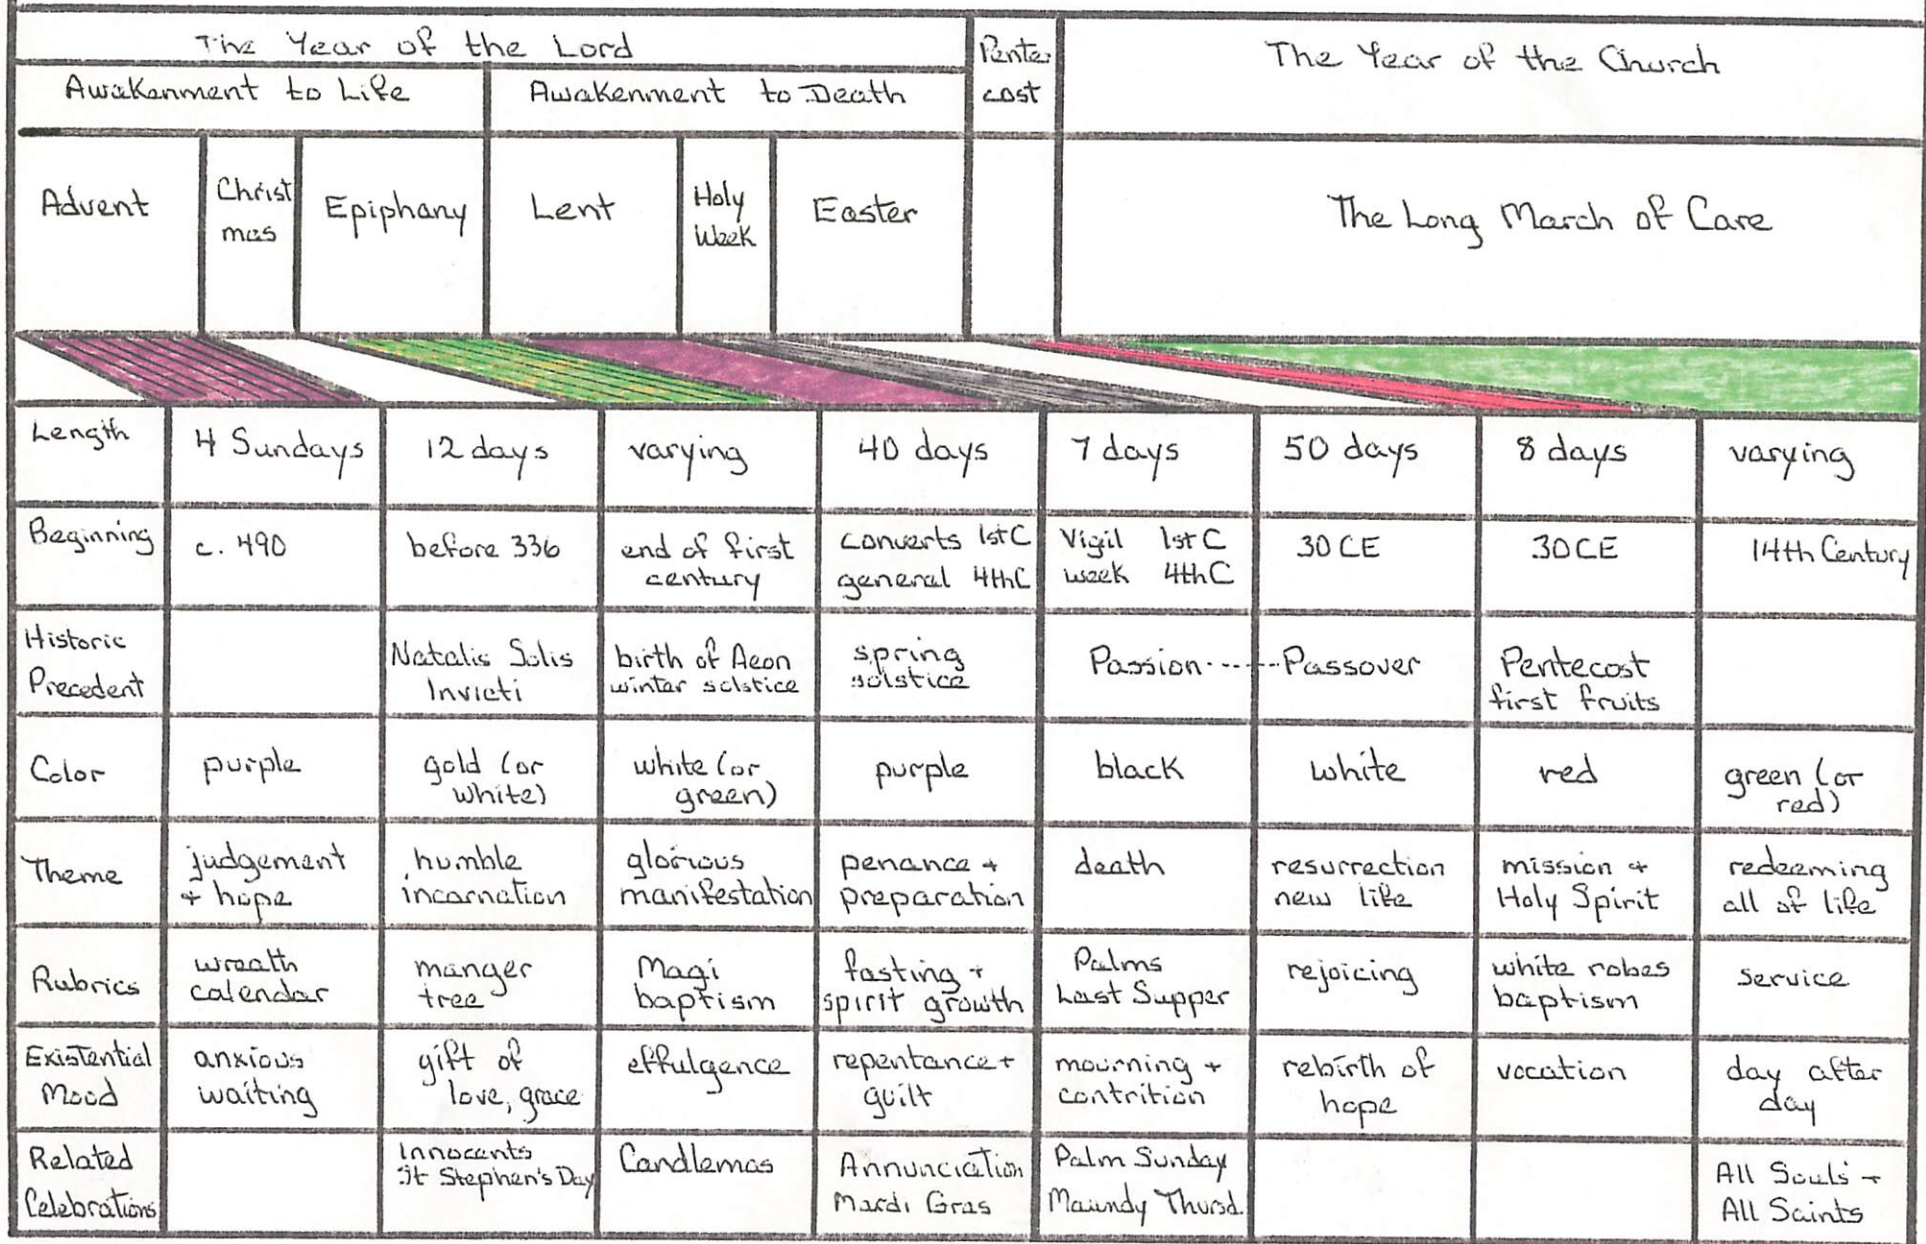 The Year of the Lord
Pente-
cost
The Year of the Church
Awakenment to Life
Awakenment to Death
Advent
Christ
mas
Epiphany
Lent
Holy
Week
Easter
The Long March of Care
Length
4 Sundays
12 days
varying
40 days
7 days
50 days
8 days
varying
Beginning
c. 490
before 336
end of first
century
converts 1st C
general 4th C
Vigil 1st C
week 4th C
30 CE
30 CE
14th Century
Historic
Precedent
Natalis Solis
Invicti
birth of Aeon
winter solstice
spring
solstice
Passion------Passover
Pentecost
first fruits
Color
purple
gold (or
white)
white (or
green)
purple
black
white
red
green (or
red)
Theme
judgement
+ hope
humble
incarnation
glorious
manifestation
penance +
preparation
death
resurrection
new life
mission +
Holy Spirit
redeeming
all of life
Rubrics
wreath
calendar
manger
tree
Magi
baptism
fasting +
spirit growth
Palms
Last Supper
rejoicing
white robes
baptism
service
Existential
Mood
anxious
waiting
gift of
love, grace
effulgence
repentance +
guilt
mourning +
contrition
rebirth of
hope
vocation
day after
day
Related
Celebrations
Innocents
St Stephen's Day
Candlemas
Annunciation
Mardi Gras
Palm Sunday
Maundy Thursd.
All Souls +
All Saints